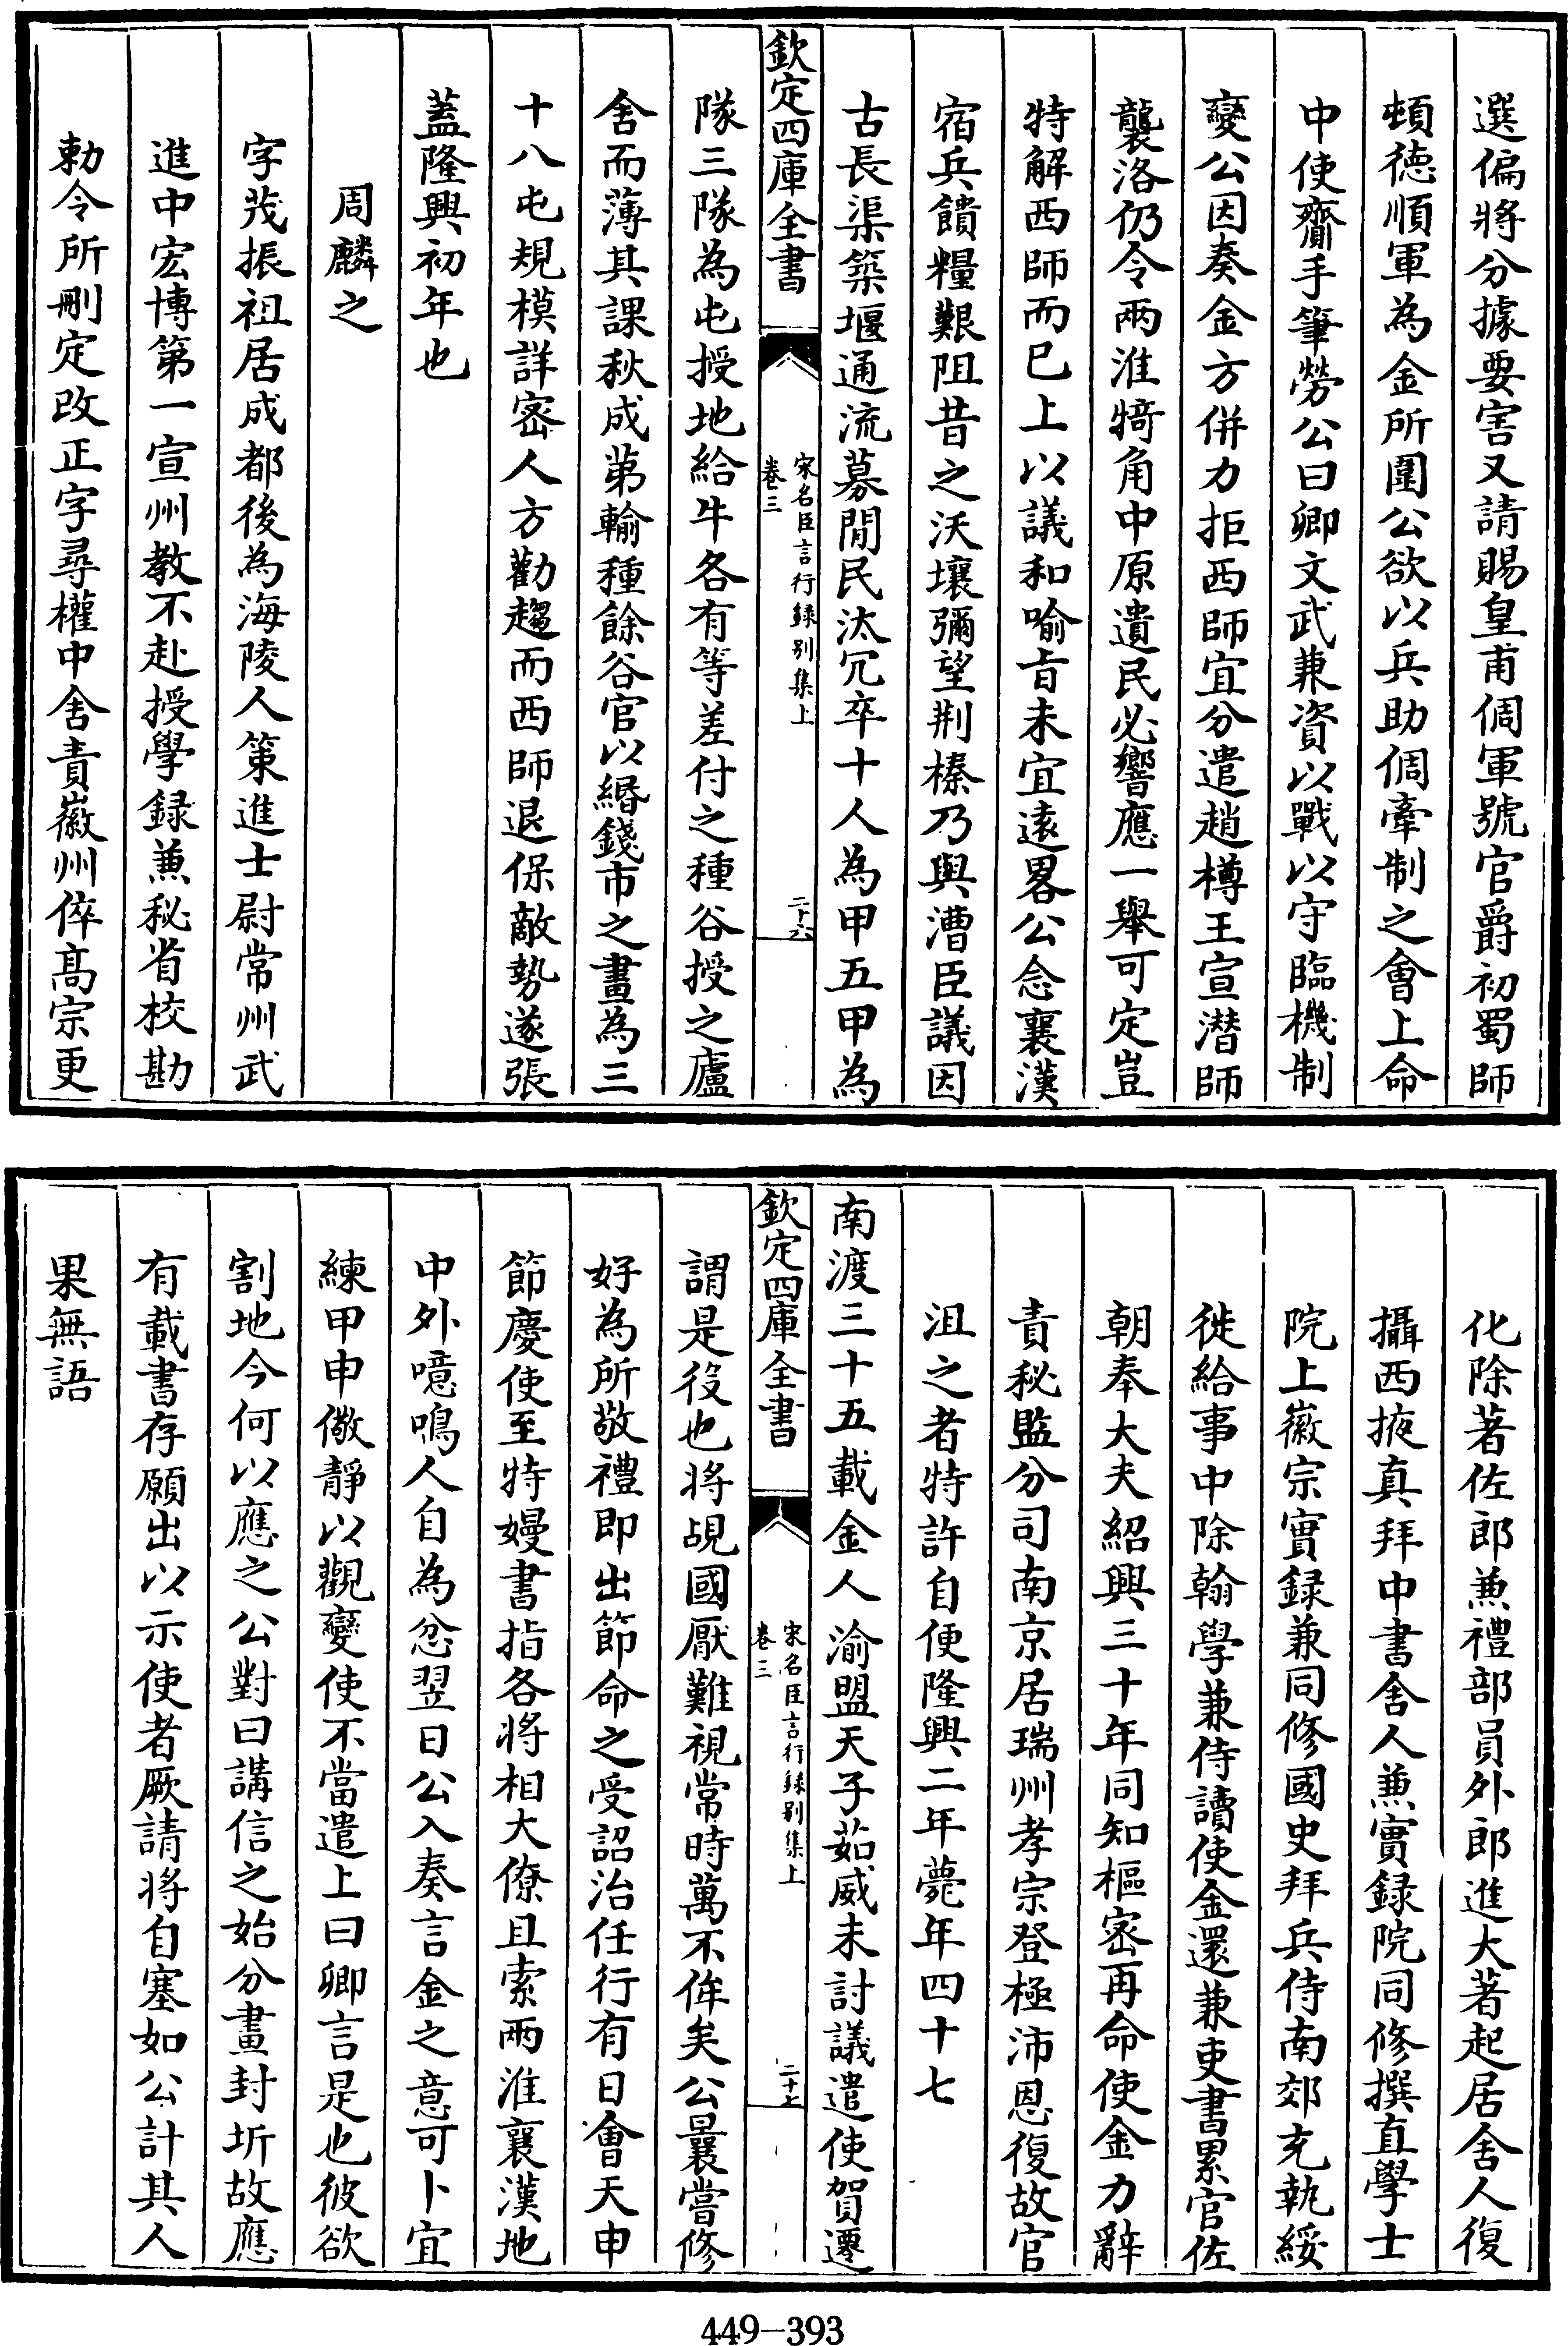 選偏將分據要害又請賜皇甫倜軍號官爵初蜀師
頓德順軍為金所圍公欲以兵助倜牽制之會上命
中使齎手筆勞公曰卿文武兼資以戰以守臨機制
變公因奏金方併力拒西師宜分遣趙樽王宣潛師
襲洛仍令兩淮犄角中原遺民必響應一舉可定豈
特解西師而已上以議和喻㫖未宜遠畧公念襄漢
宿兵饋糧艱阻昔之沃壤彌望荆榛乃與漕臣議因
古長渠築堰通流募閒民汰冗卒十人為甲五甲為
欽定四庫全書
宋名臣言行録别集上
卷三
二十六
隊三隊為屯授地給牛各有等差付之種谷授之廬
舍而薄其課秋成第輸種餘谷官以緡錢市之畫為三
十八屯規模詳密人方勸趨而西師退保敵勢遂張
蓋隆興初年也
周麟之
字茂振祖居成都後為海陵人策進士尉常州武
進中宏博第一宣州教不赴授學録兼秘省校勘
勅令所刪定改正字尋權中舍責徽州倅髙宗更
化除著佐郎兼禮部員外郎進大著起居舍人復
攝西掖真拜中書舍人兼實録院同修撰直學士
院上徽宗實録兼同修國史拜兵侍南郊充執綏
徙給事中除翰學兼侍讀使金還兼吏書累官佐
朝奉大夫紹興三十年同知樞密再命使金力辭
責秘監分司南京居瑞州孝宗登極沛恩復故官
沮之者特許自便隆興二年薨年四十七
南渡三十五載金人渝盟天子茹威未討議遣使賀遷
欽定四庫全書
宋名臣言行録别集上
卷三
二十七
謂是役也將覘國厭難視常時萬不侔矣公曩嘗修
好為所敬禮即出節命之受詔治任行有日會天申
節慶使至特嫚書指各將相大僚且索兩淮襄漢地
中外噫鳴人自為忿翌日公入奏言金之意可卜宜
練甲申儆靜以觀變使不當遣上曰卿言是也彼欲
割地今何以應之公對曰講信之始分畫封圻故應
有載書存願出以示使者厥請將自塞如公計其人
果無語
449-393